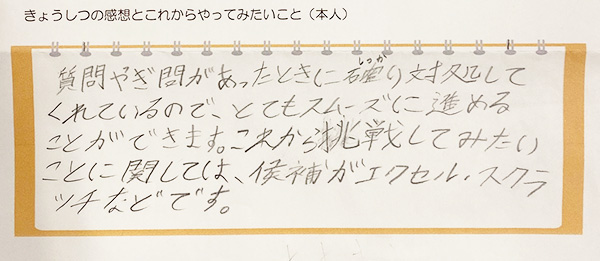 きょうしつの感想とこれからやってみたいこと（本人）
質問やぎ問があったときに確り対処して
しっか
くれているので、とてもスムーズに進める
ことができます。これから挑戦してみたい
ことに関しては、候補がエクセル・スクラ
ッチなどです。